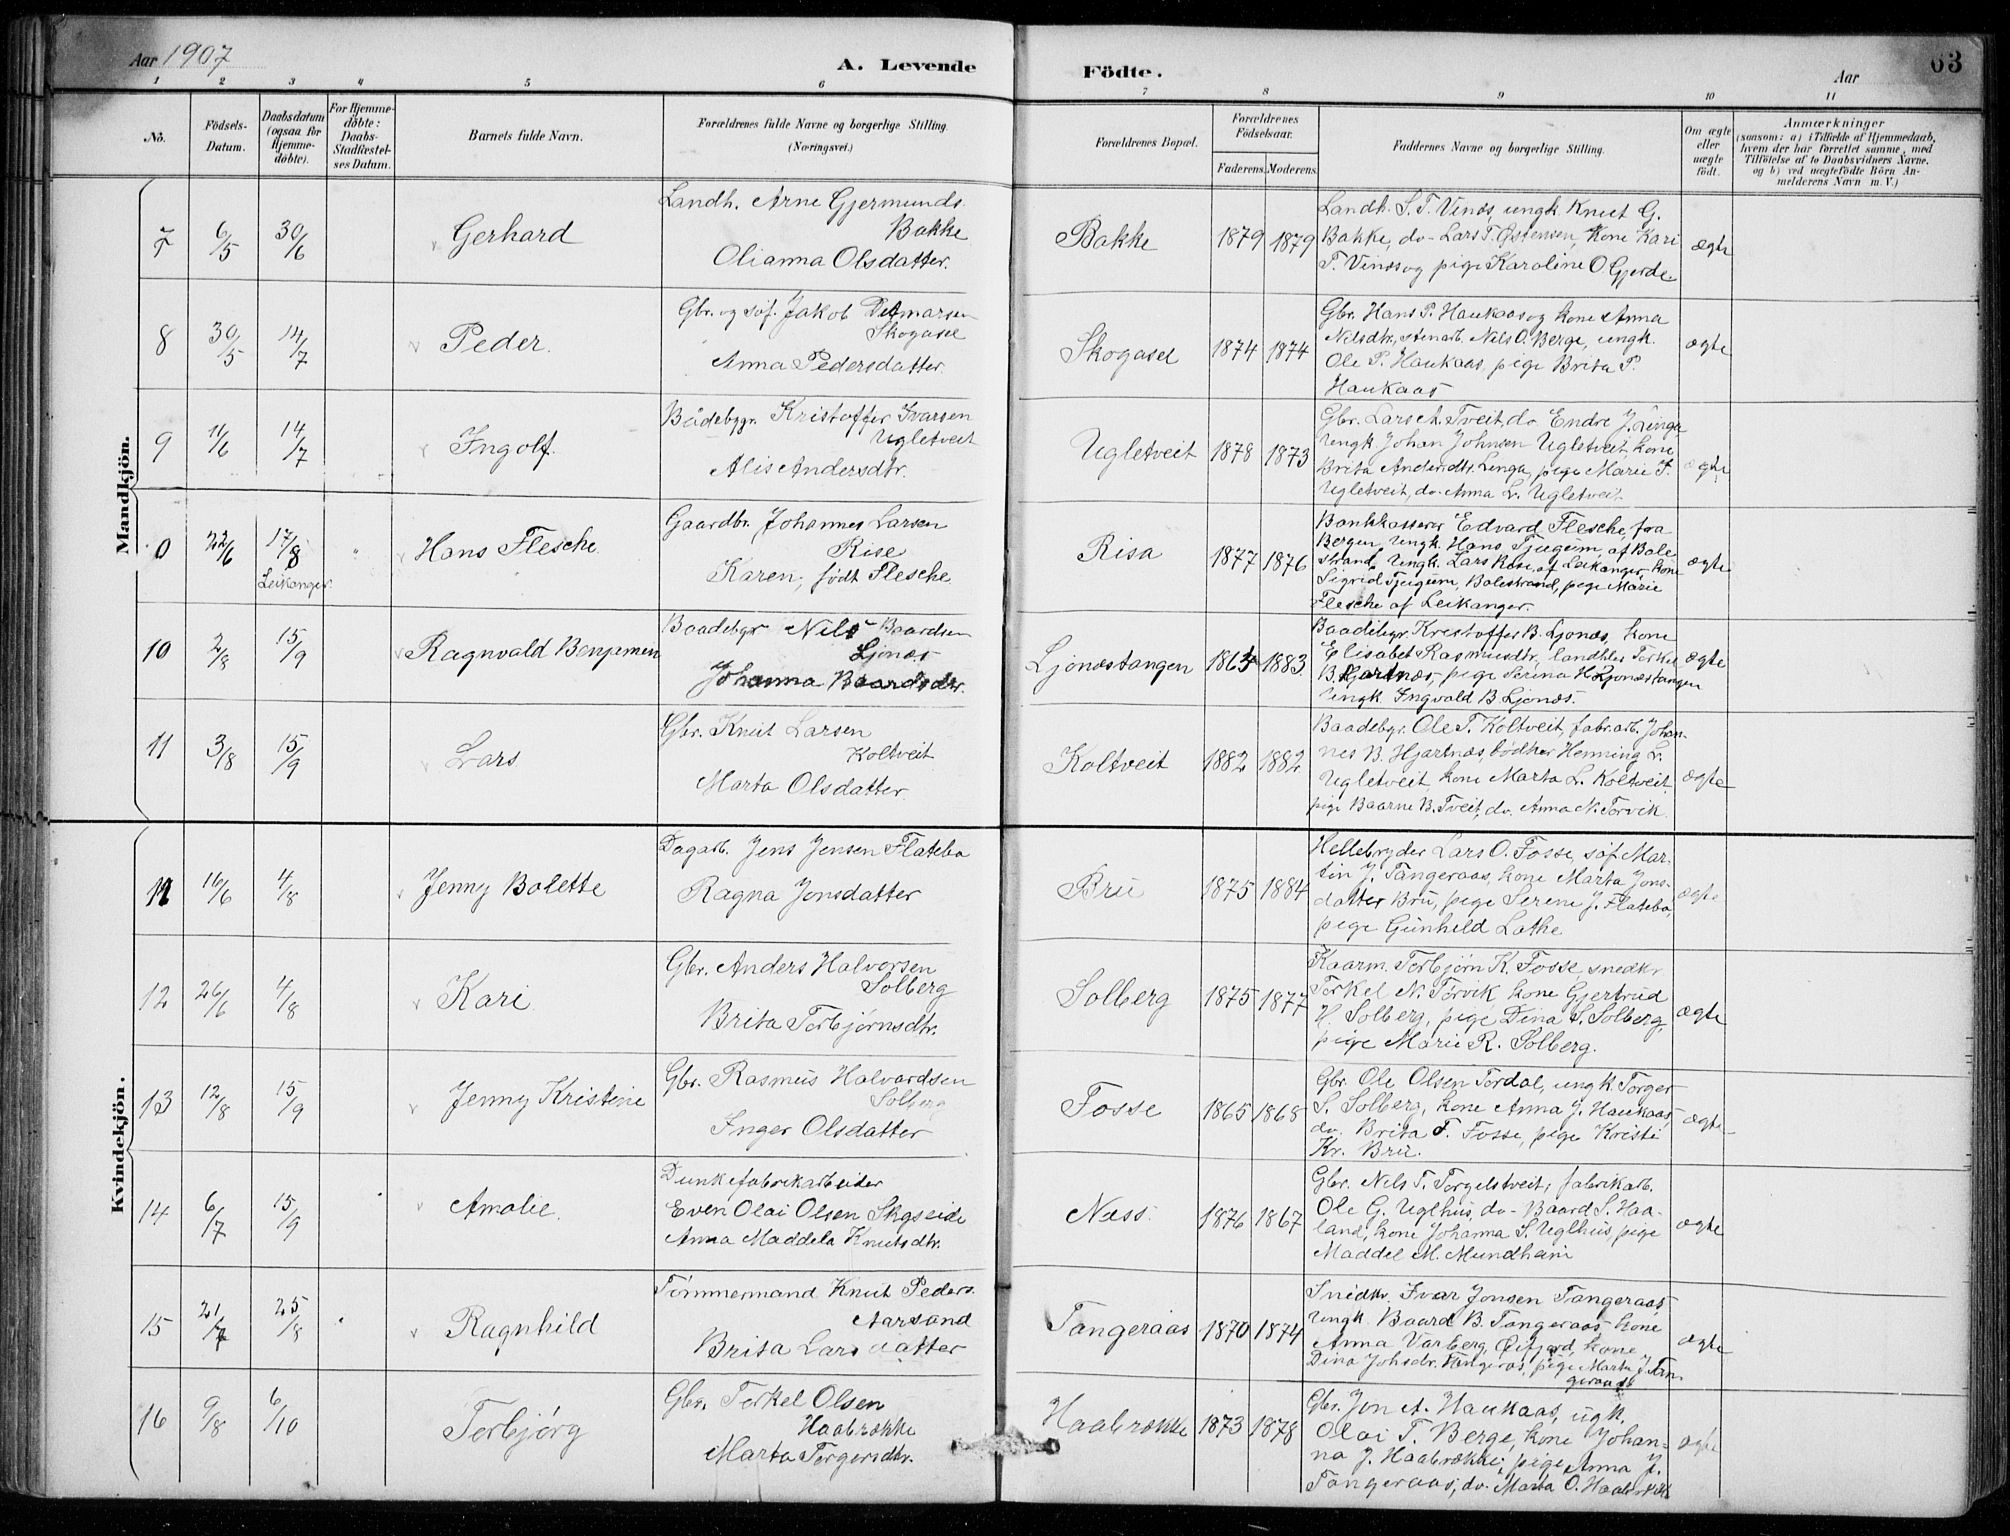 Aar 1907
A. Levende
Födte.
Aar
63
1 2 3 4 5 6 7 8 9 10 11
No.
Födsels-
Datum.
Daabsdatum
(ogsaa for
Hjemme-
döbte).
For Hjemme-
döbte:
Daabs-
Stadfæstel-
ses Datum.
Barnets fulde Navn.
Forældrenes fulde Navne og borgerlige Stilling.
(Næringsvei.)
Forældrenes Bopæl.
Forældrenes
Födselsaar.
Faderens. Moderens.
Faddernes Navne og borgerlige Stilling.
Om ægte
eller
uægte
födt.
Anmærkninger
(saasom: a) i Tilfælde af Hjemmedaab,
hvem der har forrettet samme, med
Tilföielse af to Daabsvidners Navne.
og b) ved uægtefödte Börn An-
melderens Navn m. V.)
Mandkjön.
7
6/5
30/6
Gerhard
Landh. Arne Gjermunds.
Bakke
Olianna Olsdatter.
Bakke
1879 1879
Landh. S. T. Vinæs, ungk. Knut G.
Bakke, do- Lars T. Østensen, kone Kari
T. Vinæs og pige Karoline O Gjerde.
ægte
8
30/5
14/7
Peder.
Gbr. og søf. Jakob Detmarsen
Skogasel
Anna Pedersdatter.
Skogasel
1874 1874
Gbr. Hans P. Haukaas og kone Anna
Nilsdtr., stenarb. Nils O. Berge, ungk.
Ole P. Haukaas, pige Brita P.
Haukaas
ægte
9
11/6
14/7
Ingolf.
Bådebygr. Kristoffer Ivarsen
Ugletveit
Alis Andersdtr.
Ugletveit
1878 1873
Gbr. Lars A. Tveit, do Endre J. Linga
Ungk. Johan Johnsen Ugletveit, kone
Brita Andersdtr. Linga, pige Marie I.
Ugletveit, do. Anna L. Ugletveit
ægte
0
22/6
17/8
Leikanger.
Hans Flesche.
Gaardbr. Johannes Larsen
Rise
Karen, født Flesche
Risa
1877 1876
Bankkasserer Edvard Flesche, fra
Bergen, Ungk. Hans Tjugum, af Bale
strand, Ungk. Lars Rise, af Leikanger, kone
Sigrid Tjugum, Balestrand, pige Marie
Flesche af Leikanger.
ægte
10
2/8
15/9
Ragnvald Benjamin
Baadebgr Nils Baardsen
Ljonæs
Johanna Baardsdtr.
Ljonæstangen
1863 1883.
Baadebgr. Kristoffer B. Ljonæs, kone
Elisabet Rasmusdtr, landhdl. Torkel
B. Hjartnæs, pige Serina H. Ljonæstangen
Ungk. Ingvald B Ljonæs.
ægte
11
3/8
15/9
Lars
Gbr. Knut Larsen
Koltveit
Marta Olsdatter.
Koltveit
1882 1882
Baadebgr. Ole T. Koltveit, fabr.arb. Johan-
nes B. Hjartnæs, bødker Henning L.
Ugletveit kone Marta L. Koltveit,
pige Baarne B. Tveit, do. Anna N. Torvik
ægte
Kvindekjön.
11
16/6
4/8
Jenny Bolette
Dagarb. Jens Jensen Flatebø
Ragna Jonsdatter
Bru
1875 1884
Hellebryder Lars O. Fosse, søf Mar-
tin J. Tangeraas, kone Marta Jons-
datter Bru, pige Serene J. Flatebø,
pige Gunhild Lothe
ægte
12
26/6
4/8
Kari
Gbr. Anders Halvorsen
Solberg
Brita Torbjørnsdtr.
Solberg
1875 1877
Kaarm. Torbjørn K. Fosse, snedkr
Torkel N. Torvik kone Gjertrud
H. Solberg, pige Dina S. Solberg,
pige Marie R. Solberg.
ægte
13
12/8
15/9
Jenny Kristine
Gbr. Rasmus Halvardsen
Solberg
Inger Olsdatter
Fosse
1865 1868
Gbr. Ole Olsen Tordal, ungk. Torger
S. Solberg, kone Anna J. Haukaas,
do. Brita T. Fosse, pige Kristi
Kr. Bru.
ægte
14
6/7
15/9
Amalie.
Dunkefabrikarbeider
Even Olai Olsen Skgseide
Anna Maddela Knutsdtr.
Næss.
1876 1867
Gbr. Nils T. Torgelstveit, fabrikarb.
Ole G. Uglhus, do- Baard S. Haa-
land, kone Johanna S. Uglhus, pige
Maddel M. Mundheim
ægte
15
21/7
25/8
Ragnhild
Tømmermand Knut Peders.
Aarsand
Brita Larsdatter
Tangeraas
1870 1874
Snedkr. Ivar Jonsen Tangeraas,
Ungk. Baard B. Tangeraas kone
Anna Varberg, Øifjord, kone
Dina Johsdtr. Tangeras, pige Marta J. Tan-
geraas
ægte
16
9/8
6/10
Torbjørg
Gbr. Torkel Olsen
Haabrække
Marta Torgersdtr.
Haabrække
1873 1878
Gbr. Jon A. Haukaas, ugk.
Olai T. Berge, kone Johan-
na J. Haabrække, pige Anna J.
Tangeraas, do. Marta O. Haabrække
ægte